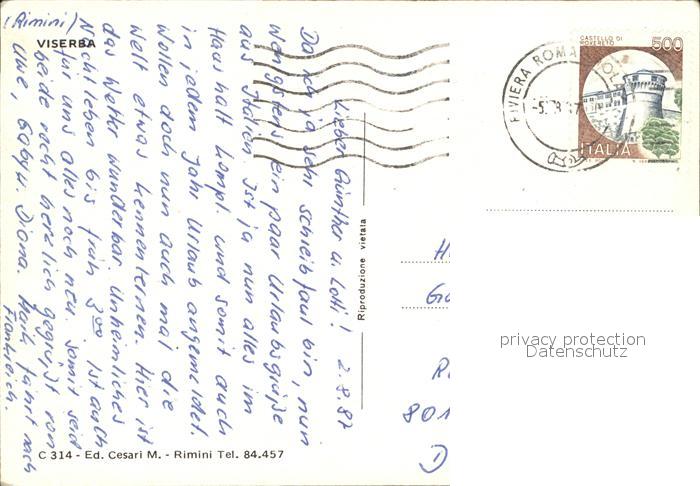 (Rimini)
VISERBA
Lieber Günther u. Lotti! 2.8.87
Da ich ja sehr schreibfaul bin, nun
wenigstens ein paar Urlaubsgrüße
aus Italien. Ist ja nun alles im
Haushalt kompl. und somit auch
in jedem Jahr Urlaub angemeldet.
Wollen doch nun auch mal die
Welt etwas kennenlernen. Hier ist
das Wetter wunderbar. Unheimliches
Nachtleben bis früh 3.00. Ist auch
für uns alles noch neu. Somit seid
beide recht herzlich gegrüßt von
Uwe, Diana. Maik fährt nach
Frankreich.
C 314 - Ed. Cesari M. - Rimini Tel. 84.457
Riproduzione vietata
CASTELLO DI
ROVERETO
500
ITALIA
RIVIERA ROMA
801
D
privacy protection
Datenschutz